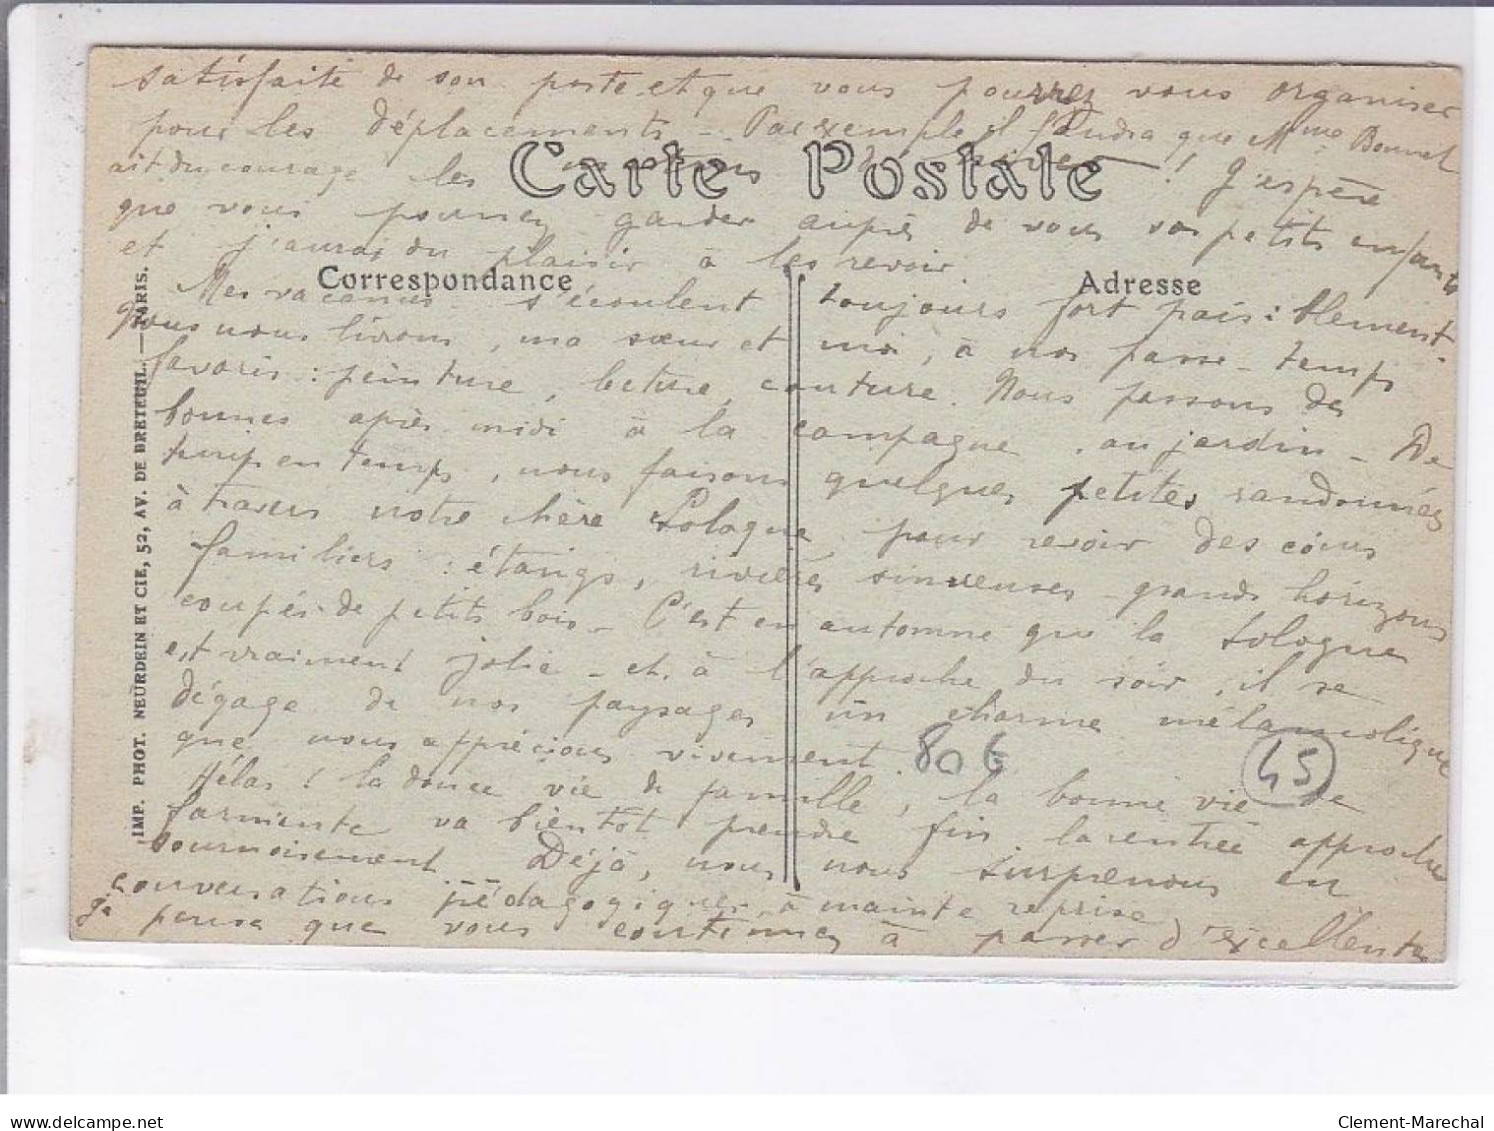 satisfaite de son poste et que vous pourrez vous organiser
pour les déplacements - Par exemple il faudra que Mme Bonnet
ait du courage les matins d' hiver ! J'espère
Carte Postale
que vous pourrez garder auprès de vous vos petits enfants
et j'aurai du plaisir à les revoir.
Correspondance
Adresse
Mes vacances s'écoulent toujours fort paisiblement.
nous nous livrons, ma sœur et moi, à nos passe-temps
favoris : peinture, lecture, couture. Nous passons des
bonnes après midi à la campagne, au jardin - De
temps en temps, nous faisons quelques petites randonnées
à travers notre chère Sologne, pour revoir des coins
familiers : étangs, rivières sinueuses grands horizons
coupés de petits bois - C'est en automne que la Sologne
est vraiment jolie - et, à l'approche du soir, il se
dégage de nos paysages un charme mélancolique
que nous apprécions vivement.
806
45
Hélas ! la douce vie de famille, la bonne vie de
farniente va bientôt prendre fin la rentrée approche
sournoisement Déjà, nous nous surprenons en
conversations pédagogiques à mainte reprise
Je pense que vous continuez à passer d'excellentes
IMP. PHOT. NEURDEIN ET CIE, 52, AV. DE BRETEUIL. — PARIS.
www.delcampe.net
Clement-Marechal